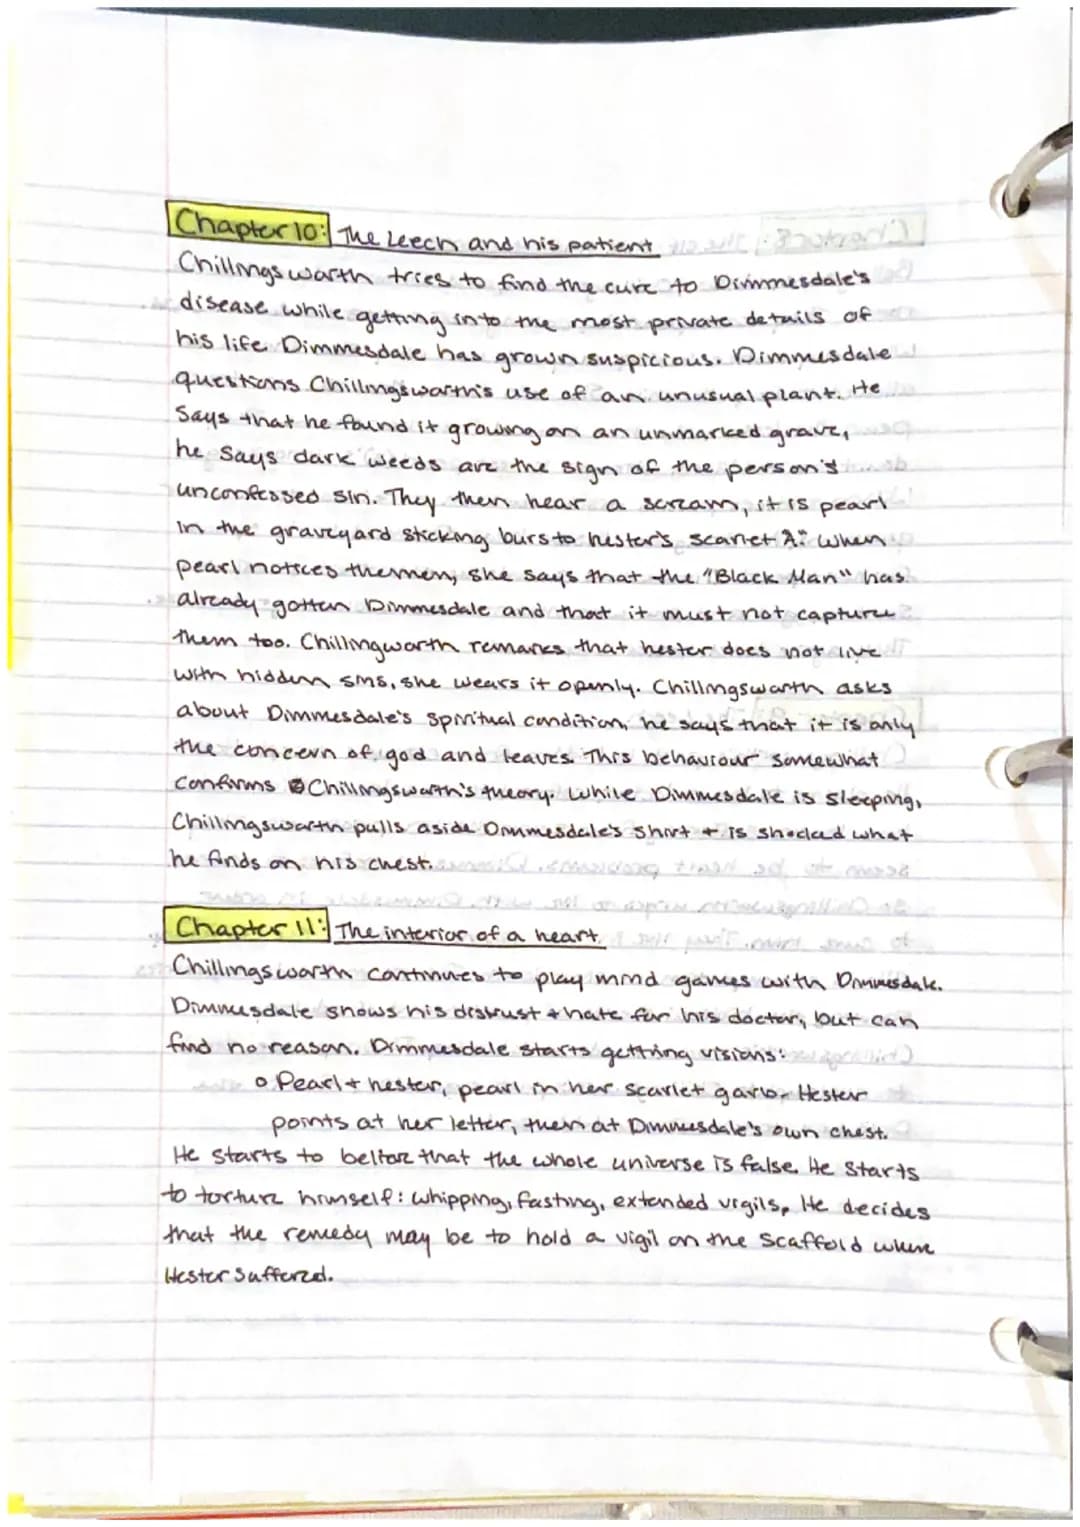 Chapter 10: The Leech and his patient
Chillingswarth tries to find the cure to Dimmesdale's
disease while getting into the most private details of
his life. Dimmesdale has grown suspicious. Dimmesdale
questions Chillingswarth's use of an unusual plant. He
Says that he found it growing on an unmarked grave,
he says dark weeds are the sign of the person's
unconfessed sin. They then hear a scream, it is pearl
in the graveyard sticking burs to hester's scarlet "A." When
pearl notices the men, she says that the "Black Man" has
already gotten Dimmesdale and that it must not capture
them too. Chillingworth remarks that hester does not live
with hidden sins, she wears it openly. Chillingswarth asks
about Dimmesdale's spiritual condition, he says that it is only
the concern of god and leaves. This behaviour somewhat
confirms Chillingswarth's theory. While Dimmesdale is sleeping,
Chillingswarth pulls aside Dimmesdale's shirt + is shocked what
he finds on his chest.
Chapter 11: The interior of a heart
Chillingswarth continues to play mind games with Dimmesdale.
Dimmesdale shows his distrust + hate for his doctor, but can
find no reason. Dimmesdale starts getting visions:
o Pearl + hester, pearl in her scarlet garb. Hester
points at her letter, then at Dimmesdale's own chest.
He starts to that the whole universe is false. He starts
to torture himself: whipping, fasting, extended vigils, He decides
that the remedy may be to hold a vigil on the Scaffold where
Hester suffered.